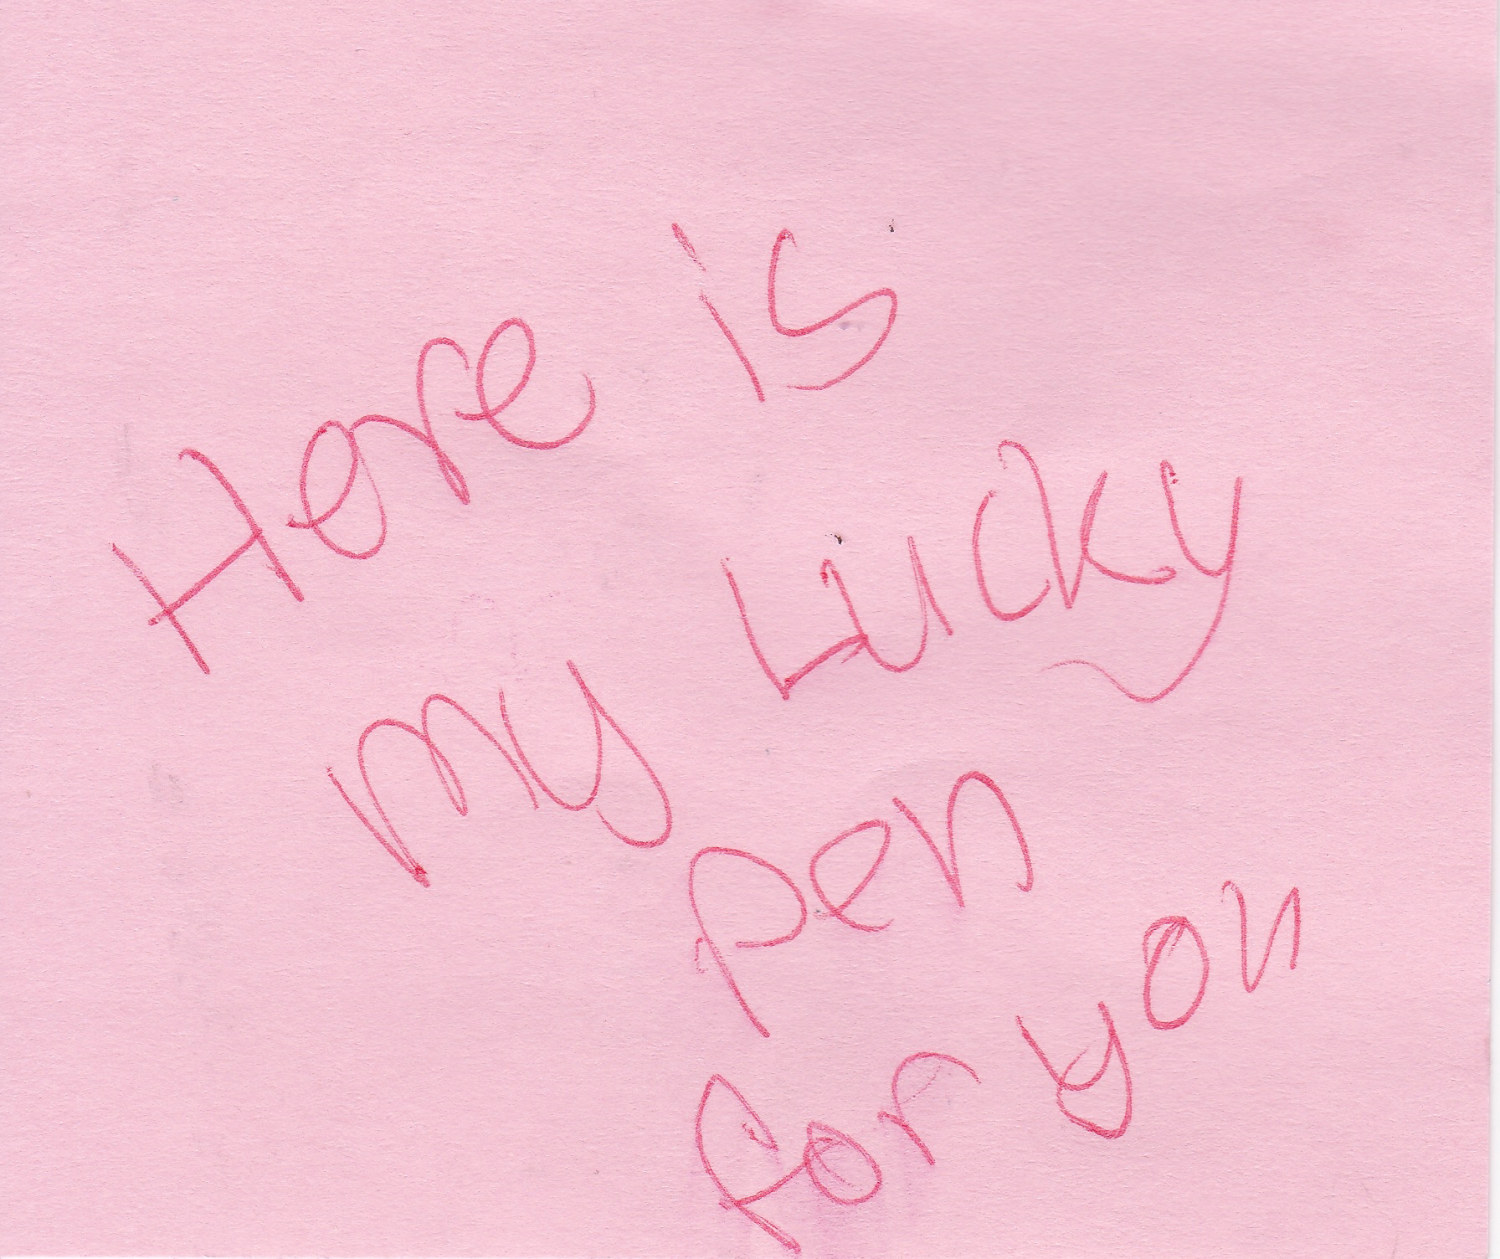 Here is
my Lucky
pen
for you